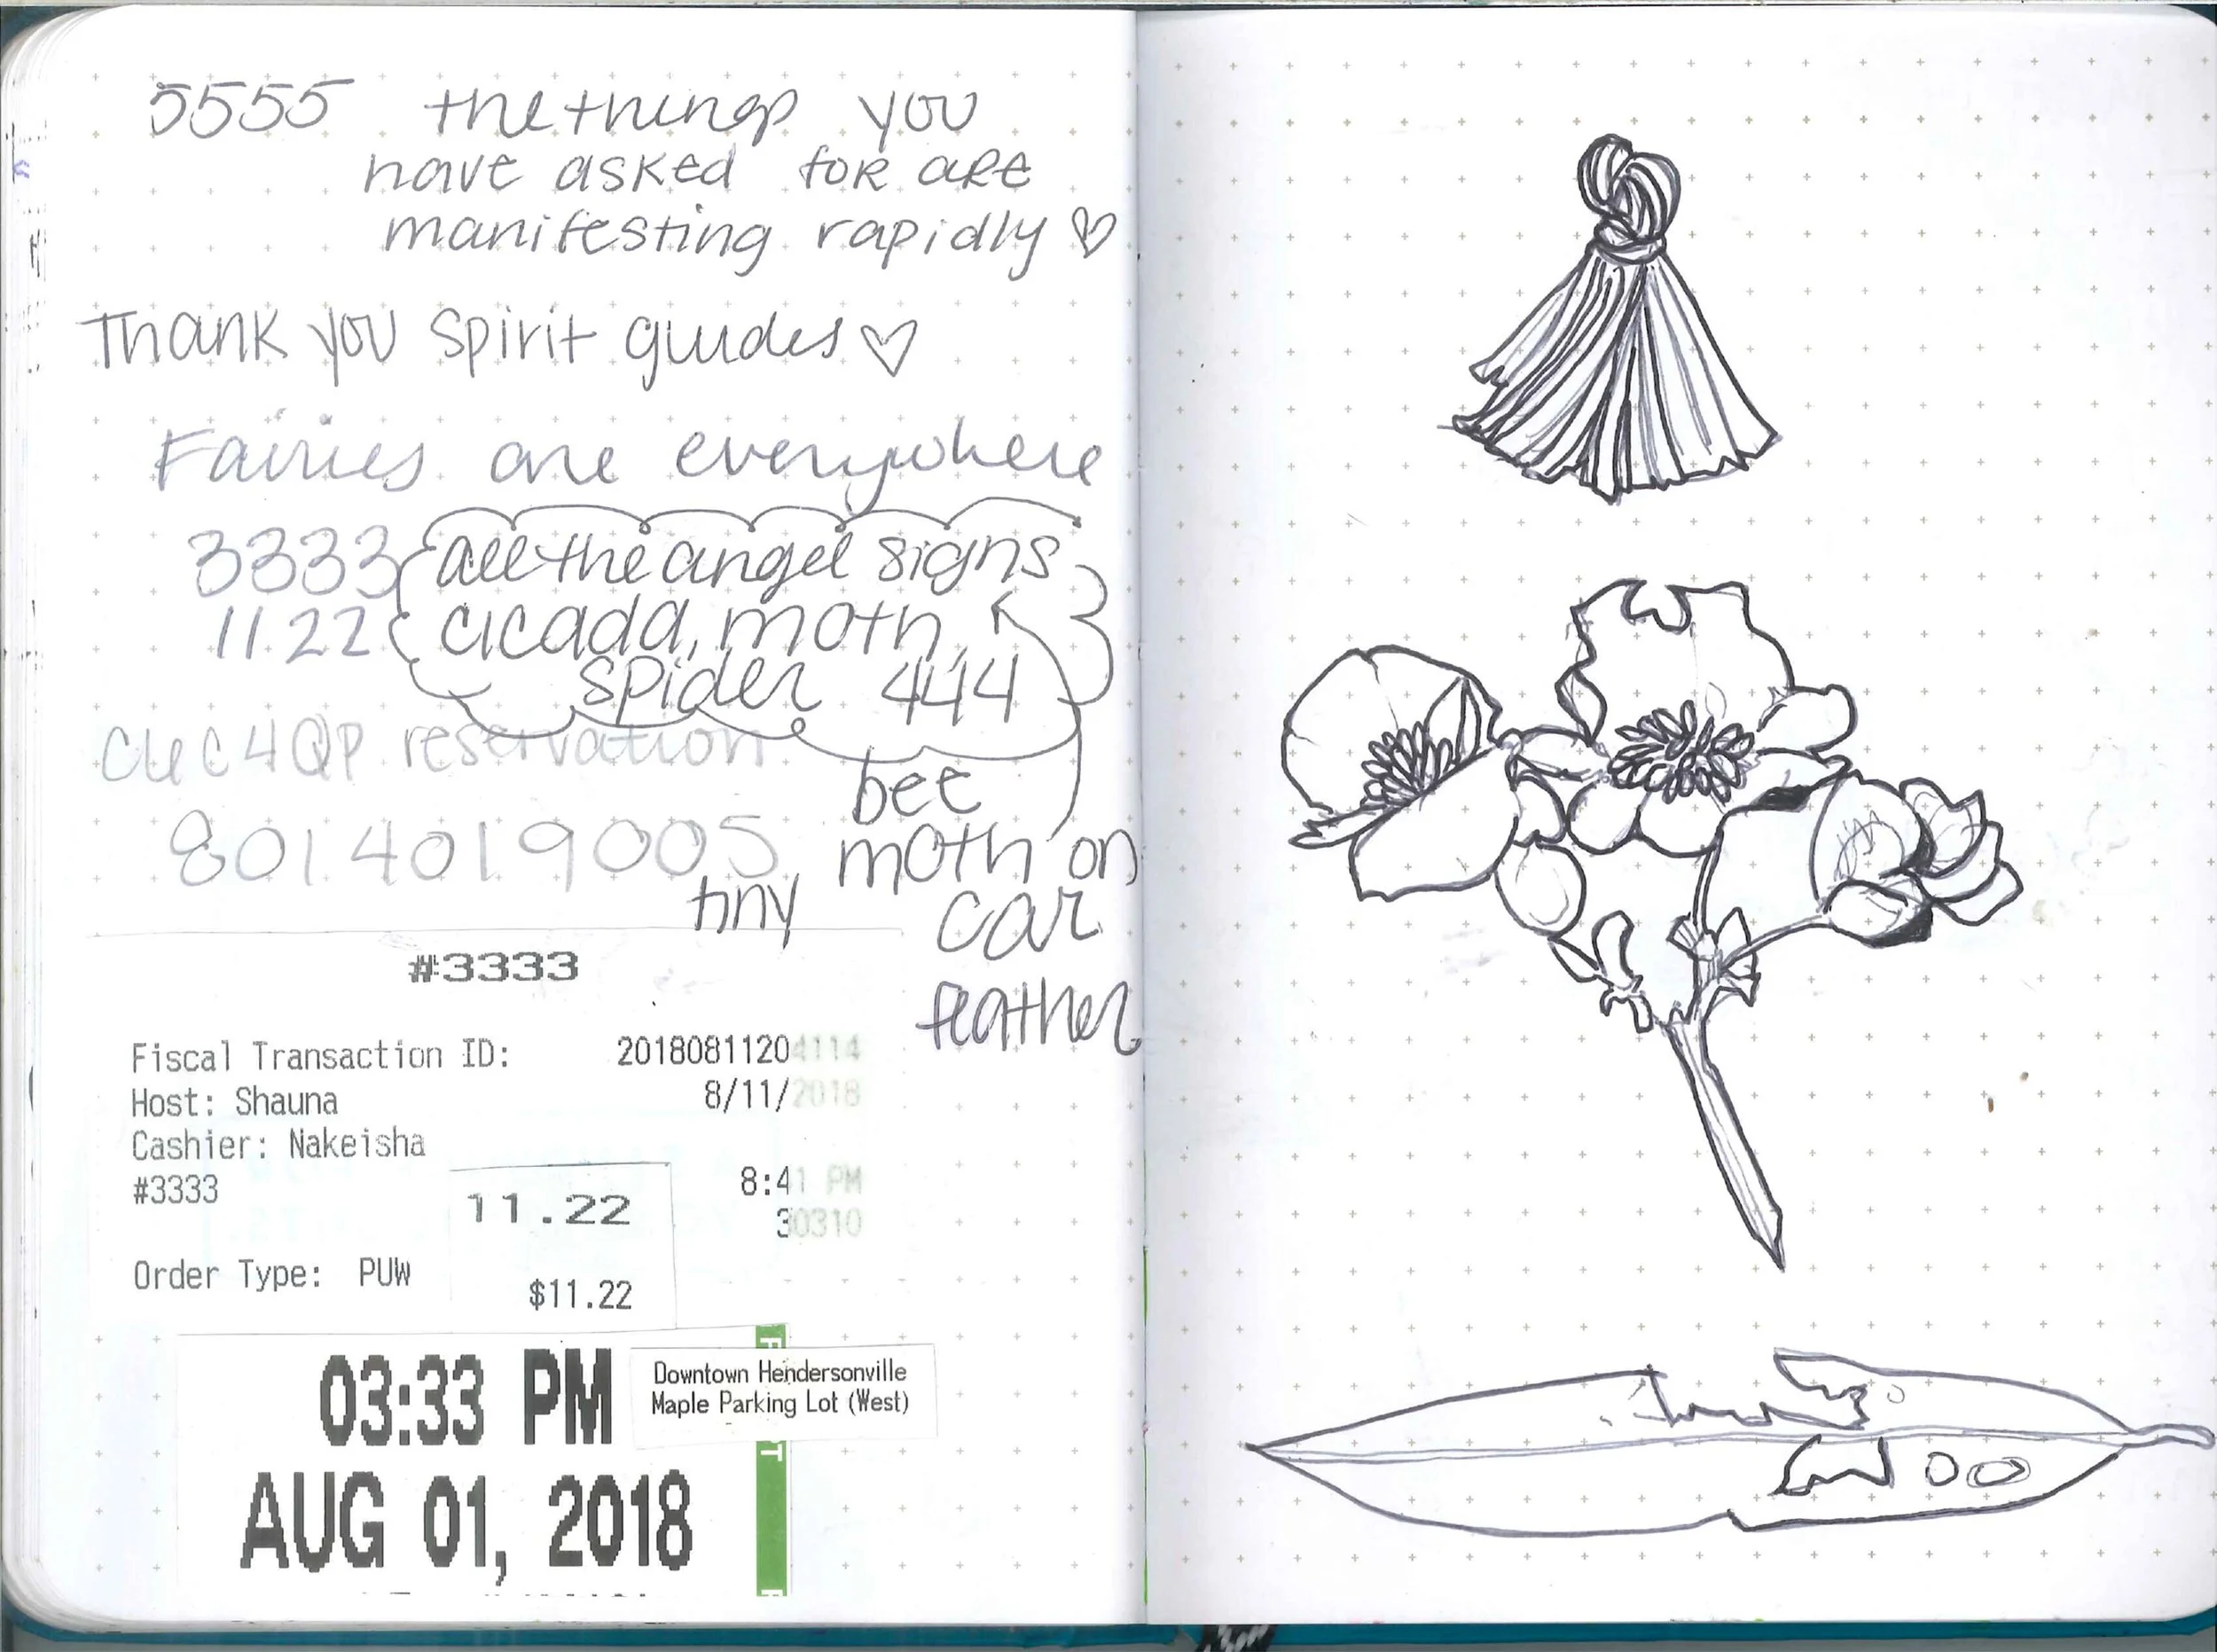 5555 the things you
have asked for are
manifesting rapidly ♡
Thank you spirit guides ♡
Fairies are everywhere
3333 all the angel signs
1122 cicada, moth,
spider 444
reservation
bee
8014019005
moth on
tiny
car
feather
#3333
Fiscal Transaction ID: 20180811204114
Host: Shauna 8/11/2018
Cashier: Nakeisha
#3333 8:41 PM
11.22
30310
Order Type: PUW
$11.22
03:33 PM
Downtown Hendersonville
Maple Parking Lot (West)
AUG 01, 2018